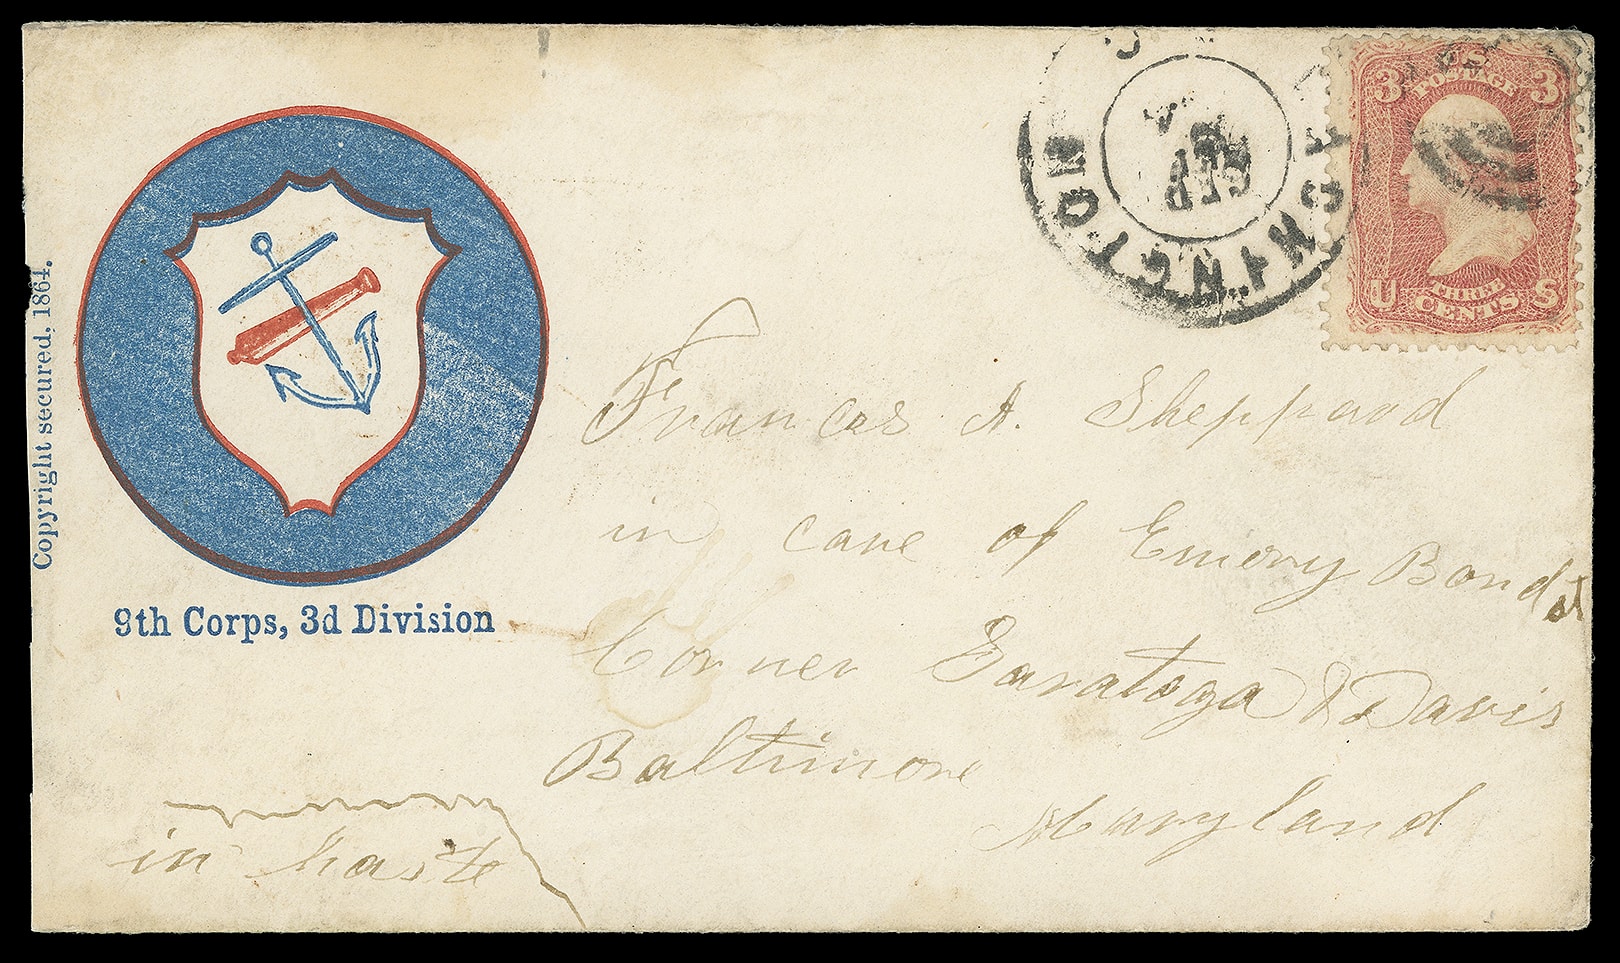 Copyright secured, 1864.
9th Corps, 3d Division
WASHINGTON
SEP
3 POSTAGE 3
U THREE CENTS S
Frances A. Sheppard
in care of Emory Bond
Corner Saratoga & Davis
Baltimore
Maryland
in haste